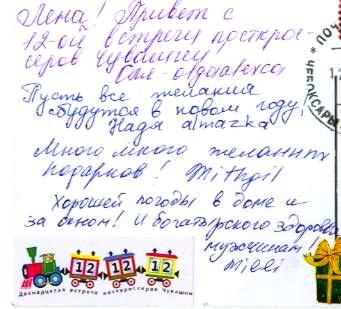 Лена! Привет с
12-ой встречи посткрос-
серов Чувашии
Оля-
Пусть все желания
сбудутся в новом году!
Надя almazka
Много много желанных
подарков! Mithgil
Хорошей погоды в доме и
за окном! И богатырского здоровья
мужчинам!
Milli
12 12 12
Двенадцатая встреча посткроссеров Чувашии
ПОЧ
ЧЕБОКСАРЫ